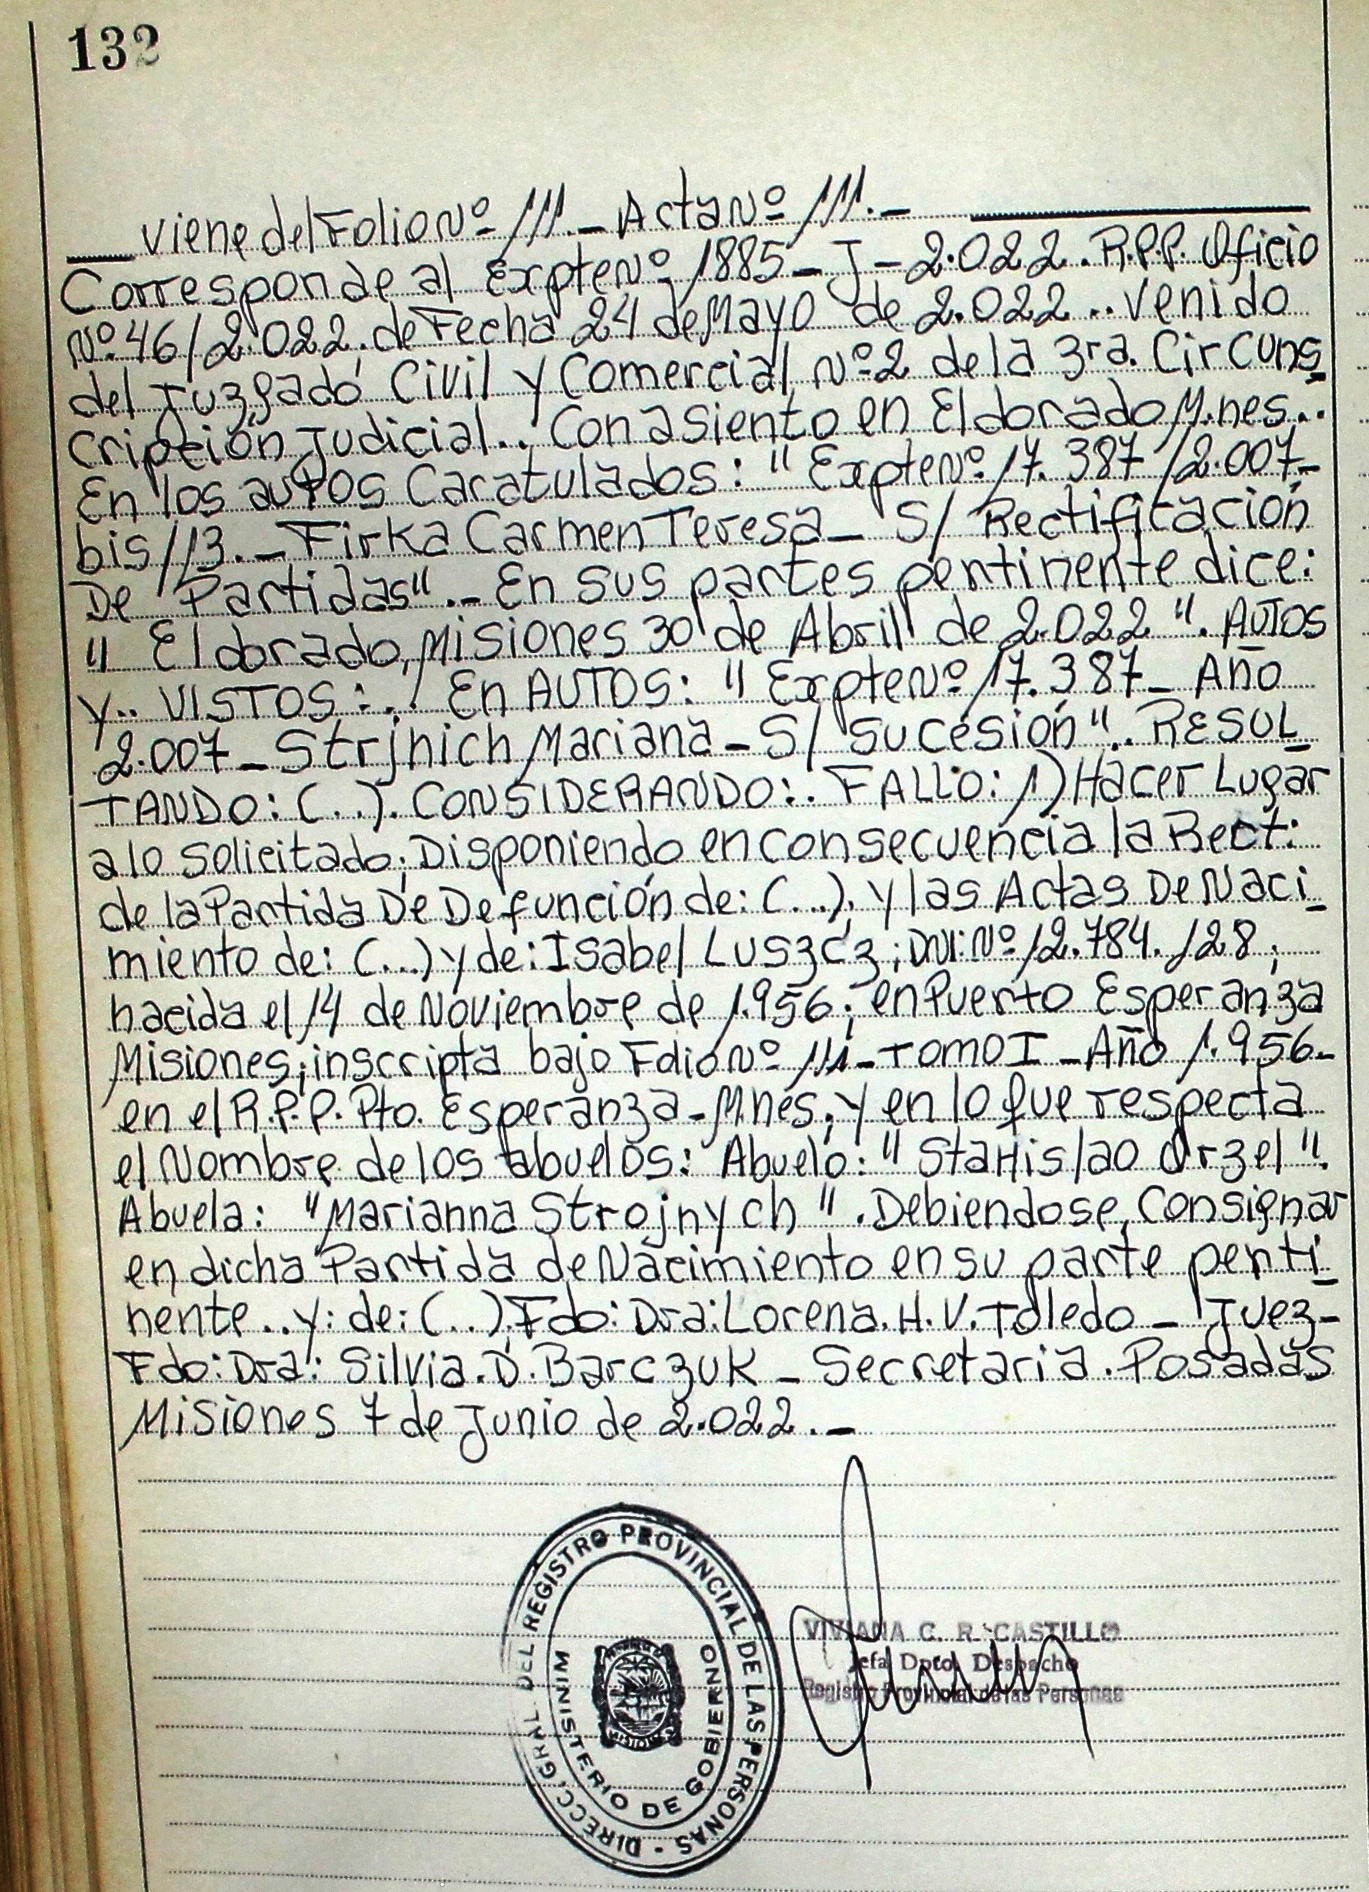 132
Viene del Folio Nº 111_ Acta Nº 111._
Corresponde al Expte Nº 1885_J_2.022. R.P.P. Oficio
Nº 46/2.022. de Fecha 24 de Mayo de 2.022.. Venido
del Juzgado Civil y Comercial Nº 2 de la 3ra. Circuns_
cripción Judicial.. Con asiento en Eldorado M.nes..
En los autos Caratulados: "Expte Nº 17.387/2.007_
bis/13._ Firka Carmen Teresa_ S/ Rectifitación
De Partidas"._ En sus partes pentinente dice:
" Eldorado, Misiones 30 de Abril de 2.022". AUTOS
y.. VISTOS:.. En AUTOS: " Expte Nº 17.387_ Año
2.007_ Strjnich Mariana_ S/ Sucesión".. RESUL_
TANDO: (..). CONSIDERANDO:. FALLO: 1) Hacer Lugar
a lo Solicitado; Disponiendo en Consecuencia la Rect:
de la Partida De Defunción de: (...). y las Actas De Naci_
miento de: (...) y de: Isabel Luszcz; DNI: Nº 12.784.128;
nacida el 14 de Noviembre de 1.956; en Puerto Esperanza
Misiones; inscripta bajo Folio Nº 111_ Tomo I_ Año 1.956_
en el R.P.P. Pto. Esperanza_ Mnes; y en lo que respecta
el Nombre de los abuelos: Abuelo: "Stanislao Orzel".
Abuela: "Marianna Strojnych". Debiendose, Consignar
en dicha Partida de Nacimiento en su parte penti_
nente.. y: de: (..). Fdo: Dra: Lorena. H. V. Toledo_ Juez_
Fdo: Dra: Silvia. D. Barczuk_ Secretaria. Posadas
Misiones 7 de Junio de 2.022._
DIRECC. GRAL. DEL REGISTRO PROVINCIAL DE LAS PERSONAS -
MINISTERIO DE GOBIERNO
VIVIANA C. R. CASTILLO
Jefa Dpto. Despacho
Registro Provincial de las Personas